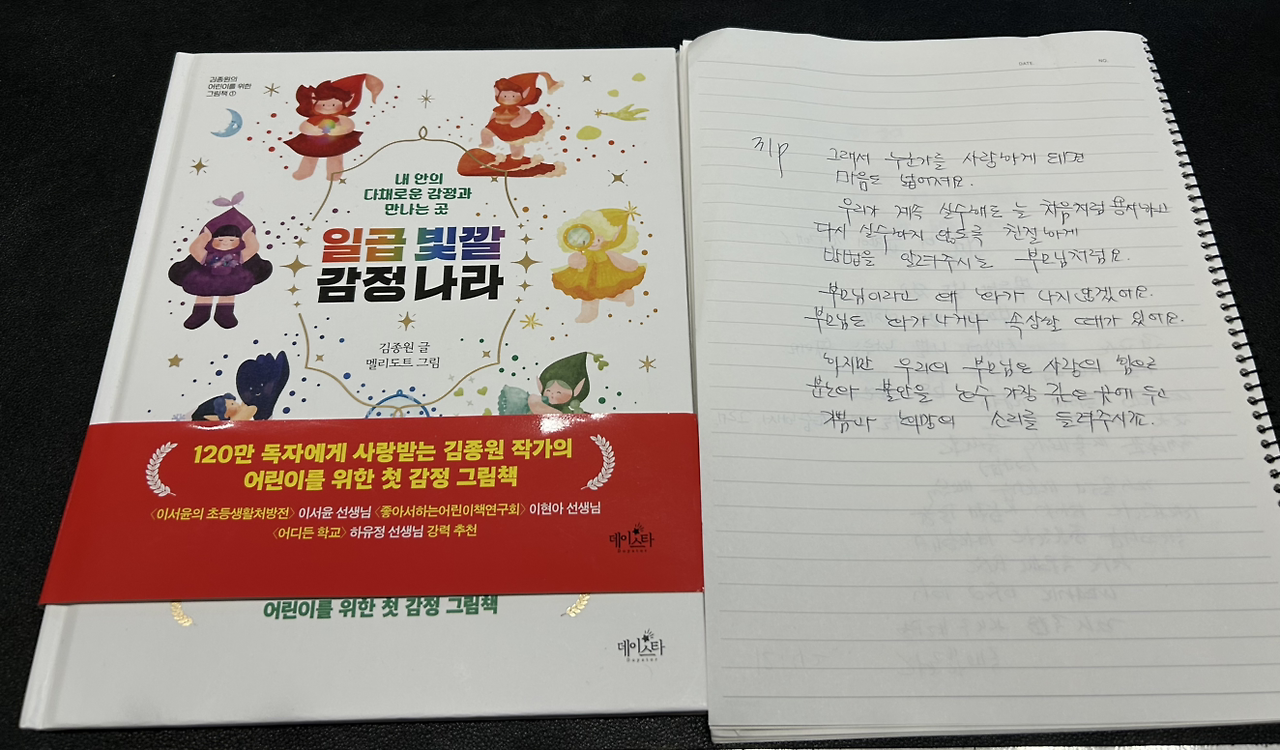 김종원의
어린이를 위한
그림책 ①
내 안의
다채로운 감정과
만나는 곳
일곱 빛깔
감정 나라
김종원 글
멜리도트 그림
120만 독자에게 사랑받는 김종원 작가의
어린이를 위한 첫 감정 그림책
〈이서윤의 초등생활처방전〉 이서윤 선생님 〈좋아서하는어린이책연구회〉 이현아 선생님
〈어디든 학교〉 하유정 선생님 강력 추천
데이스타
Daystar
어린이를 위한 첫 감정 그림책
데이스타
Daystar
DATE. NO.
31p
그래서 누군가를 사랑하게 되면
마음도 넓어져요.
우리가 계속 실수해도 늘 처음처럼 용서하고
다시 실수하지 않도록 친절하게
방법을 알려주시는 부모님처럼요.
부모님이라고 왜 화가 나지 않겠어요.
부모님도 화가 나거나 속상할 때가 있어요.
하지만 우리의 부모님은 사랑의 힘으로
분노와 불안을 호수 가장 깊은 곳에 두고
기쁨과 희망의 소리를 들려주시죠.